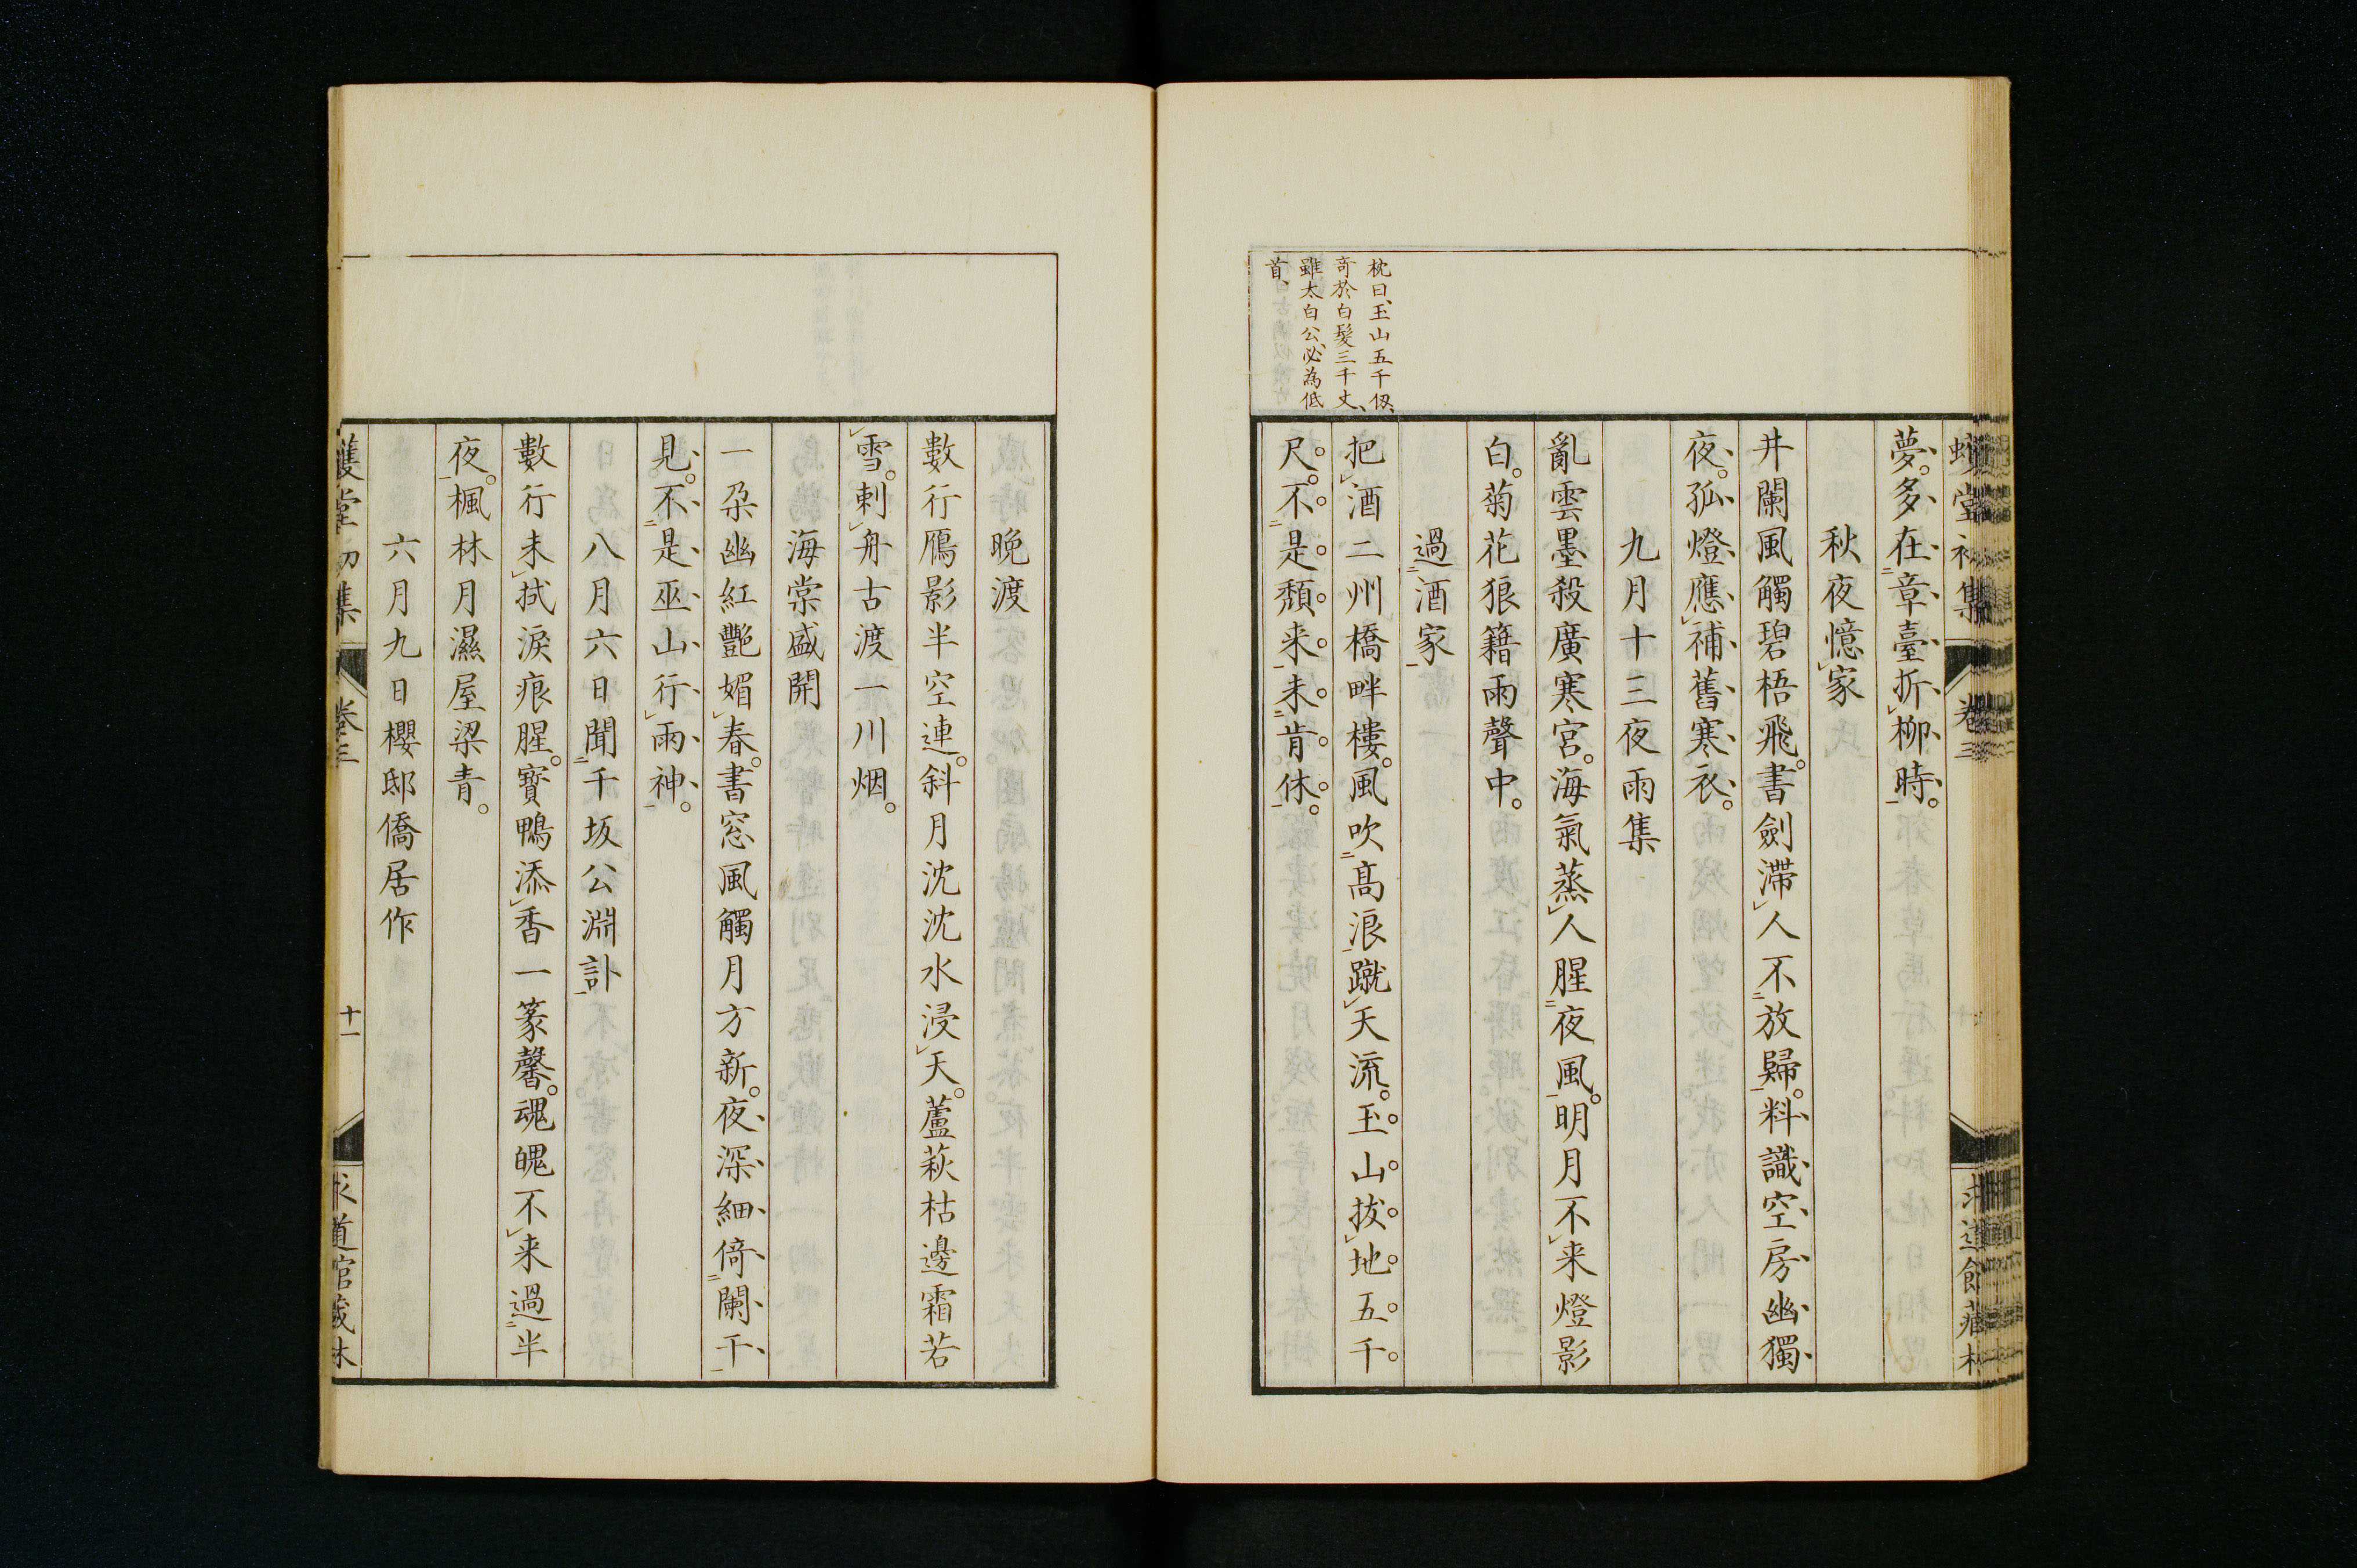 夢。多在章臺折柳時。
秋夜憶家
井闌風觸碧梧飛。書劍滯人不放歸。料識空房幽獨
夜。孤燈應補舊寒衣。
九月十三夜雨集
亂雲墨殺廣寒宮。海氣蒸人腥夜風。明月不来燈影
白。菊花狼籍雨聲中。
過酒家
把酒二州橋畔樓。風吹高浪蹴天流。玉山拔地五千
尺。不是頽来未肯休。
枕曰、玉山五千仭、
奇於白髮三千丈、
雖太白公、必為低
首、
晩渡
數行鴈影半空連。斜月沈沈水浸天。蘆萩枯邊霜若
雪。刺舟古渡一川烟。
海棠盛開
一朶幽紅艷媚春。書窓風觸月方新。夜深細倚闌干
見。不是巫山行雨神。
八月六日聞千坂公淵訃
數行未拭淚痕腥。寶鴨添香一篆馨。魂魄不来過半
夜。楓林月濕屋梁青。
六月九日櫻邸僑居作
堂初集
卷三
十一
道館藏